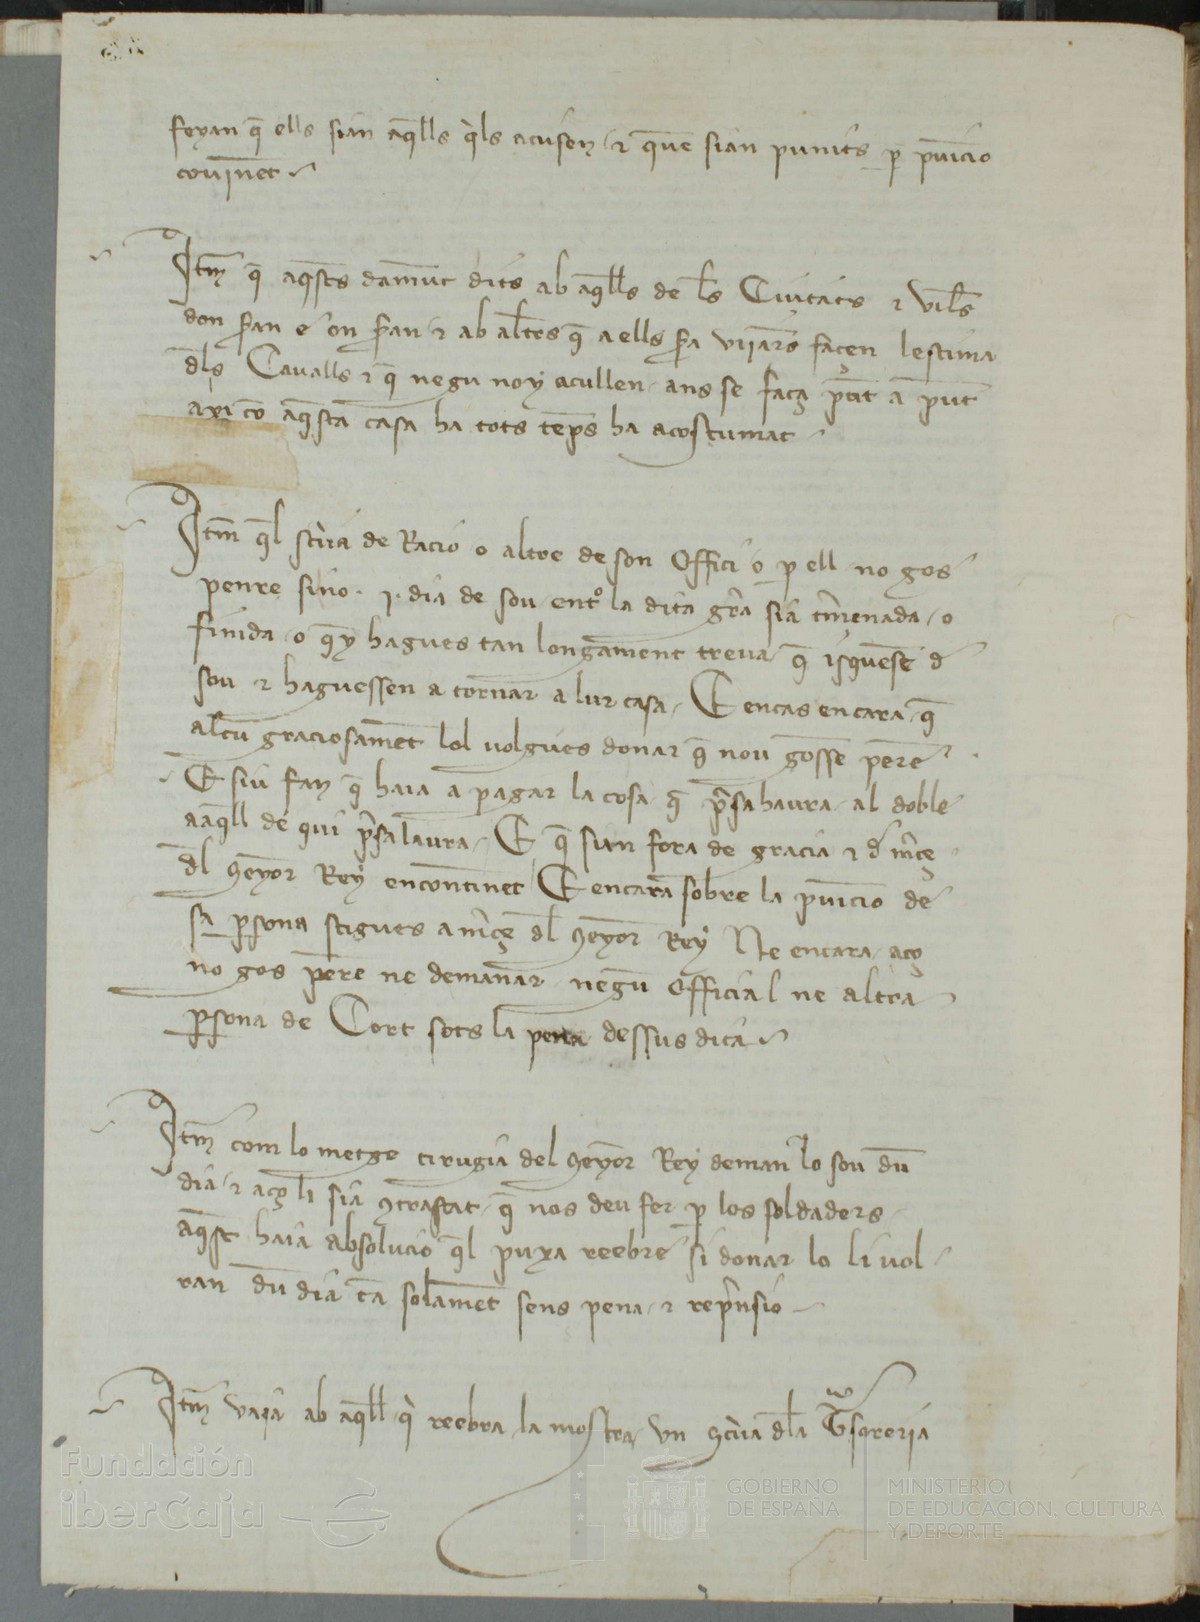 feyan q̄ ells sian aq̄lls q̀ls acusen / ⁊ quene sian punits p̱ pūicio
covinēt
Itm̄ q̄ aq̄sts damūt dits ab aq̄lls de l̄s Ciutats ⁊ viles
don s̄ran e on s̄ran / ⁊ ab alt̄res q̄ a ells s̄ra viiares façen lestima
d̄ls Cavalls ⁊ q̄ negu noy acullen / ans se faça pūt a pūt
axi cō aq̄sta casa ha tots tēps ha acostumat
Itm̄ q̄l scr̀iva de Racio o altre de son Offici o p̱ ell no gos
penre sino · j · dia de sou / entᵒ la dita gr̄a sia tr̄menada / o
finida / o q̄y hagues tan longament treva q̄ isquēse d̄
sou ⁊ haguessen a tornar a lur casa / E encas encara q̄
alcū graciosamēt lol volgues donar q̄ nou gosse pēre
E siu fan q̄ haia a pagar la cosa q̄ pr̄sa haura / al doble
a aq̄ll de qui pr̄sa laura / E q̄ sian fora de gracia ⁊ d̄ mr̄ce
d̄l Senyor Rey encontinēt E encara sobre la pūicio de
sa p̱sona stigues a mr̄ce d̄l Senyor Rey Ne encara aço
no gos pēre ne demanar negū Official ne altra
p̱sona de Cort sots la pena dessus dita
Itm̄ com lo metge cirugia del Senyor Rey deman lo sou dū
dia / ⁊ aço li sia 9trastat / q̄ nos deu fer p̱ los soldaders
aq̄st haia absolucio q̄l puxa reebre si donar lo li vol
ran dū dia tā solamēt sens pena / ⁊ repr̄nsio
Itm̄ vaia ab aq̄ll q̀ reebra la mostra / vn scr̀iva d̄la Tresoreria
Fundación
iberCaja
GOBIERNO
DE ESPAÑA
MINISTERIO
DE EDUCACIÓN, CULTURA
Y DEPORTE